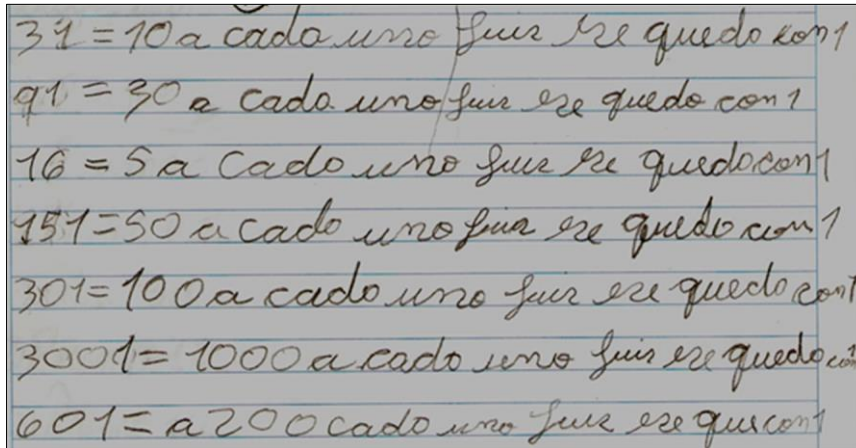 31 = 10 a cada uno Juis se quedo con 1
91 = 30 a cada uno Juis se quedo con 1
16 = 5 a cada uno Juis se quedo con 1
151 = 50 a cada uno Juis se quedo con 1
301 = 100 a cada uno Juis se quedo con 1
3001 = 1000 a cada uno Juis se quedo con 1
601 = a 200 cada uno Juis se que con 1